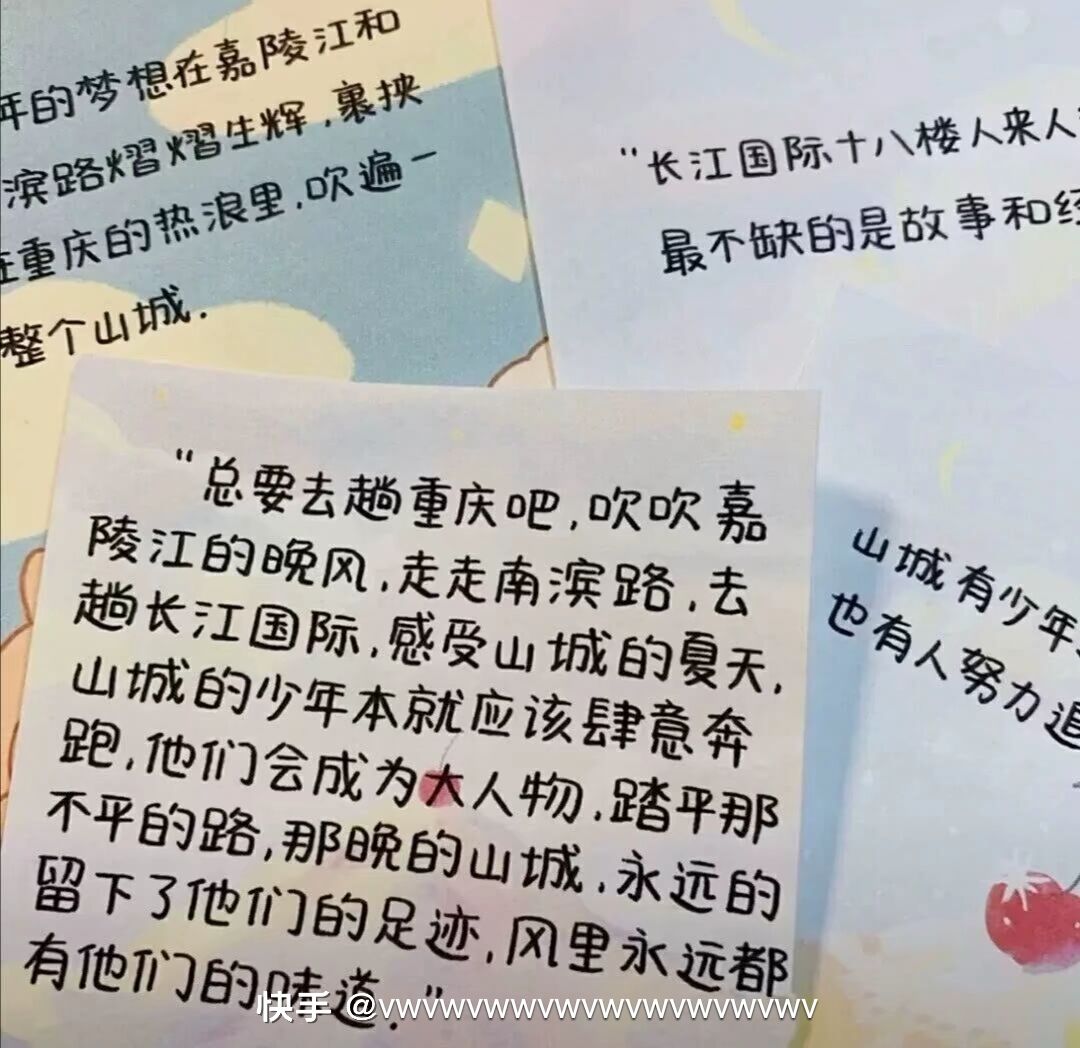 年的梦想在嘉陵江和
滨路熠熠生辉，裹挟
在重庆的热浪里，吹遍一
整个山城.
"长江国际十八楼人来人
最不缺的是故事和经
"总要去趟重庆吧，吹吹嘉
陵江的晚风，走走南滨路，去
趟长江国际，感受山城的夏天，
山城的少年本就应该肆意奔
跑，他们会成为大人物，踏平那
不平的路，那晚的山城，永远的
留下了他们的足迹，风里永远都
有他们的味道."
山城有少年
也有人努力追
快手 @vwvwvwvwvwvwvwvwvwvwvwv